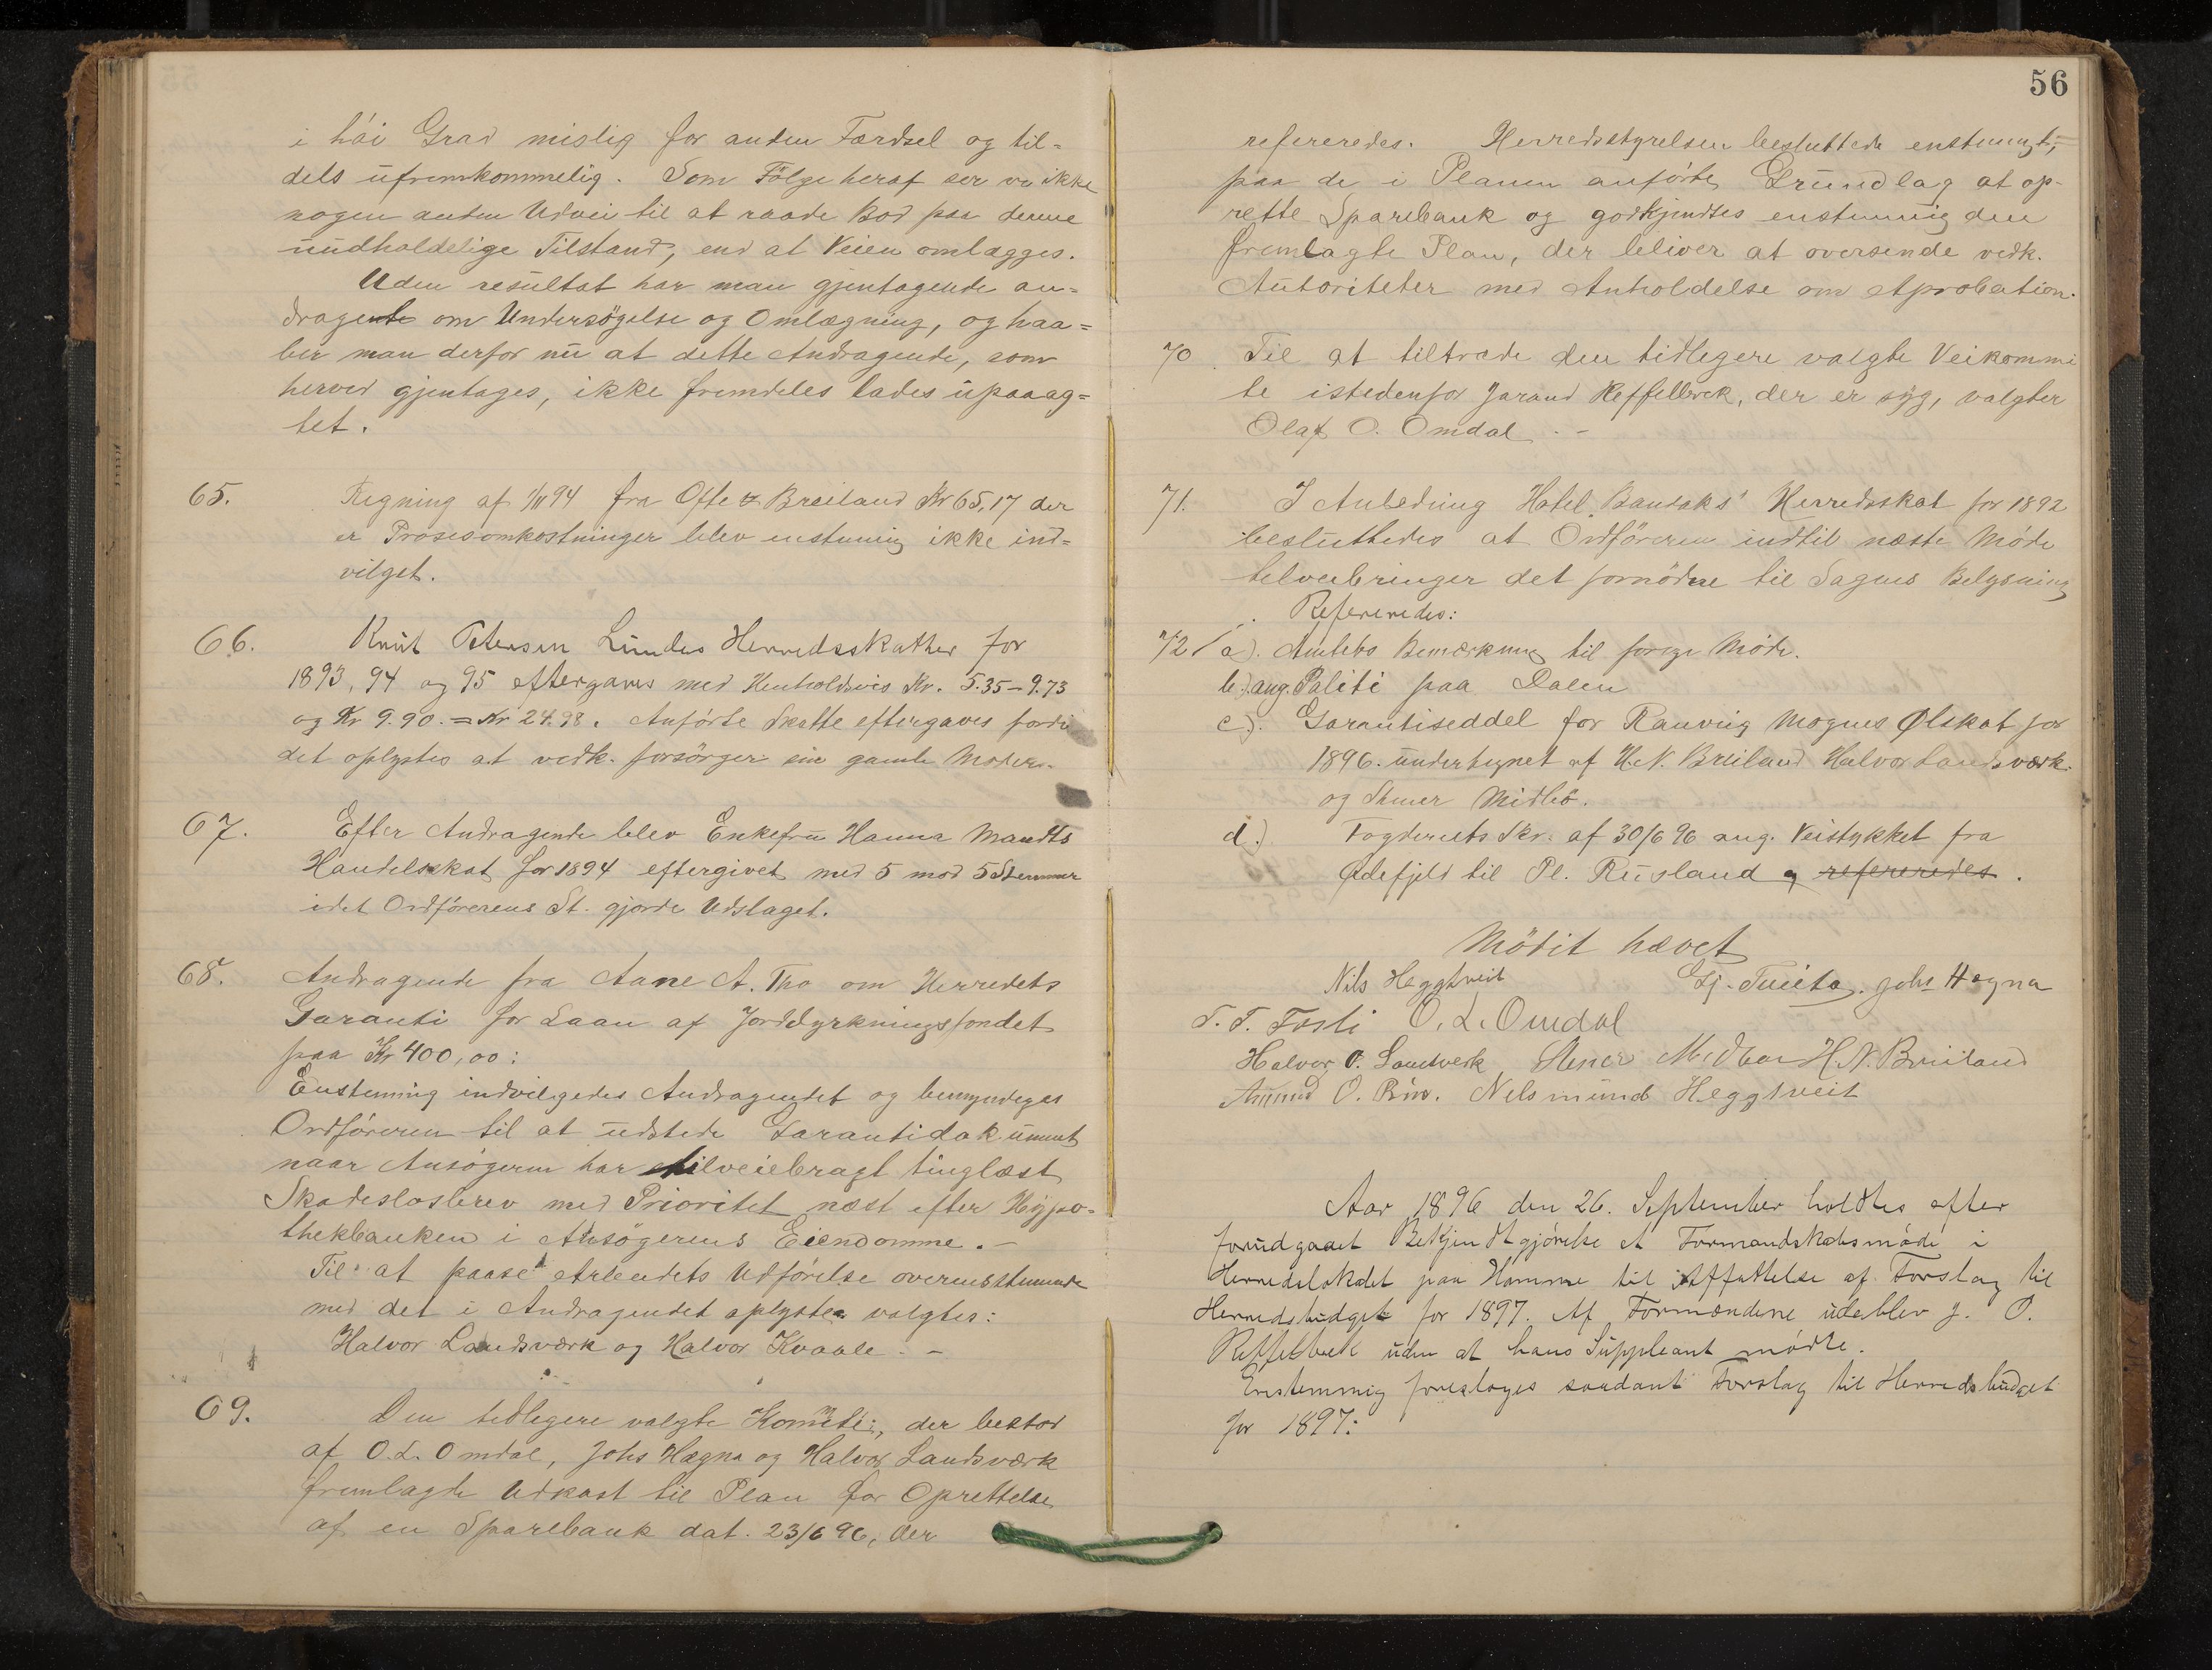 i hói Grad mislig for anden Færdsel og til=
dels ufremkommelig. Som Fölge heraf ser vi ikke
nogen anden Udvei til at raade Bod paa denne
uudholdelige Tilstand, end at Veien omlægges.
Uden resultat har man gjentagende an=
dragende om Undersögelse og Omlægning, og haa=
ber man derfor nu at dette Andragende, som
herved gjentages, ikke fremdeles lades upaaag=
tet.
65. Regning af 94 fra Ofte & Breiland Kr 65,17 der
er Prosesomkostninger blev enstemig ikke ind=
vilget.
66. Knut Petersen Lundes Herredsskatter for
1893, 94 og 95 eftergaves med Henholdsvis Kr. 5.35 – 9.73
og Kr 9.90. = Kr 24.98. Anförte Skatte eftergaves fordi
det oplystes at vedk. forsörger sin gamle Moder.
67. Efter Andragende blev Enkefru Hanna Mandts
Handelsskat for 1894 eftergivet med 5 mod 5 Stemmer
idet Ordförerens St. gjorde Udslaget.
68. Andragende fra Aane A. Tho om Herredets
Garanti for Laan af Jorddyrkningsfondet
paa Kr 400,00:
Enstemig indvilgedes Andragendet og bemyndiges
Ordföreren til at udstede Garantidokument
naar Ansögeren har tilveiebragt tinglæst
Skadesløsbrev med Prioritet næst efter Hypo=
thekbanken i Ansögerens Eiendomme. –
Til at paase Arbeidets Udförelse overensstemmende
med det i Andragendet oplyste valgtes:
Halvor Landsværk og Halvor Kvaale. –
69. Den tidligere valgte Komite, der bestod
af O. L. Omdal, Johs Hægna og Halvor Landsværk
fremlagde Udkast til Plan for Oprettelse
af en Sparebank dat. 23/6 96, der
56
refereredes. Herredsstyrelsen besluttede enstemigt,
paa de i Planen anförte Grundlag at op-
rette Sparebank og godkjendtes enstemig den
fremlagte Plan, der bliver at oversende vedk.
Autoriteter med Anholdelse om Aprobation.
70. Til at tiltræde den tidligere valgte Veikommi
te istedenfor Jarand Reffelbæk, der er syg, valgtes
Olaf O. Omdal. –
71. I Anledning Hotel "Bandaks" Herredsskat for 1892
besluttedes at Ordföreren indtil næste Möde
tilveiebringer det fornödne til Sagens Belysning
Refereredes:
72 a). Amtets Bemærkning til forrige Möde.
b). ang. Politi paa Dalen
c). Garantiseddel for Ranveig Mognes Ølskat for
1896. undertegnet af H. N. Breiland Halvor Landsværk
og Stener Midbö.
d.) Fogderiets Skr. af 30/6 96 ang. Veistykket fra
Ødefjeld til Pl. Rusland og refereredes.
Mödet hævet
Nils Heggtveit Gj. Tveito. Johs Hægna
T. T. Fosli O. L. Omdal
Halvor O. Landsverk Stener Midbøe H. N. Breiland
Amund O. Bøe. Nelsmund Heggtveit
Aar 1896 den 26. September holdtes efter
forudgaaet Bekjendtgjörelse et Formandskabsmöde i
Herredslokalet paa Homme til Affattelse af Forslag til
Herredsbudget for 1897. Af Formændene udeblev J. O.
Reffelbæk uden at hans Suppleant mödte.
Enstemmig foresloges saadant Forslag til Herredsbudget
for 1897: